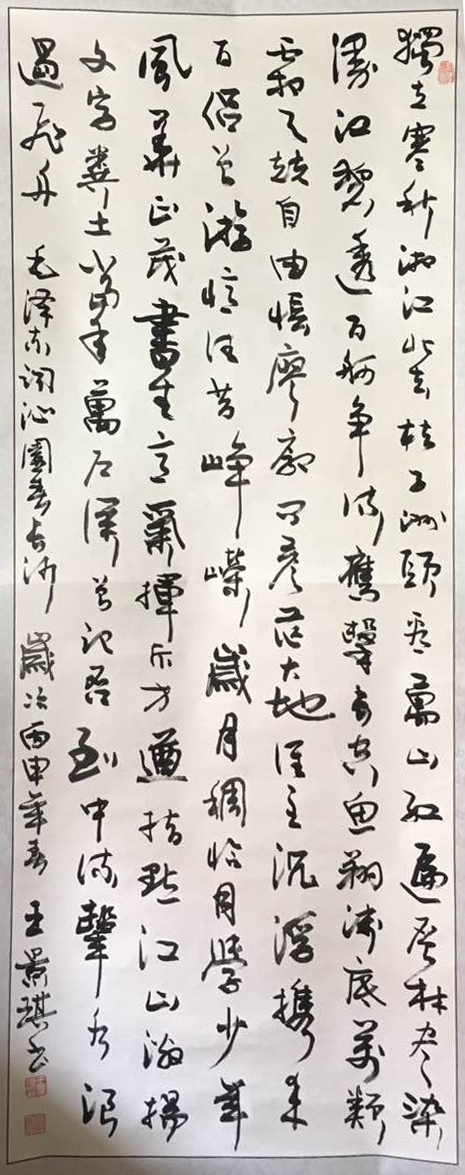 獨立寒秋湘江北去桔子洲頭看萬山紅遍層林盡染
漫江碧透百舸爭流鷹擊長空魚翔淺底萬類
霜天競自由悵廖廓問蒼茫大地誰主沉浮攜來
百侶曾游憶往昔崢嶸歲月稠恰同學少年
風華正茂書生意氣揮斥方遒指點江山激揚
文字糞土當年萬户侯曾記否到中流擊水浪
遏飛舟 毛澤東詞沁園春長沙 歲次丙申年春 王景琪書